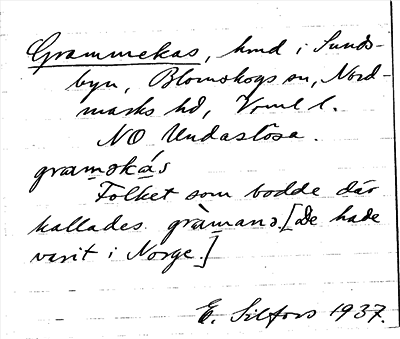 Grammekas, hmd i Sunds-
byn, Blomskogs sn, Nord-
marks hd, Vrml l.
NO Undaslösa.
gramǝkás
Folket som bodde där
kallades gràmanɔ. [De hade
varit i Norge.]
E. Silfors 1937.